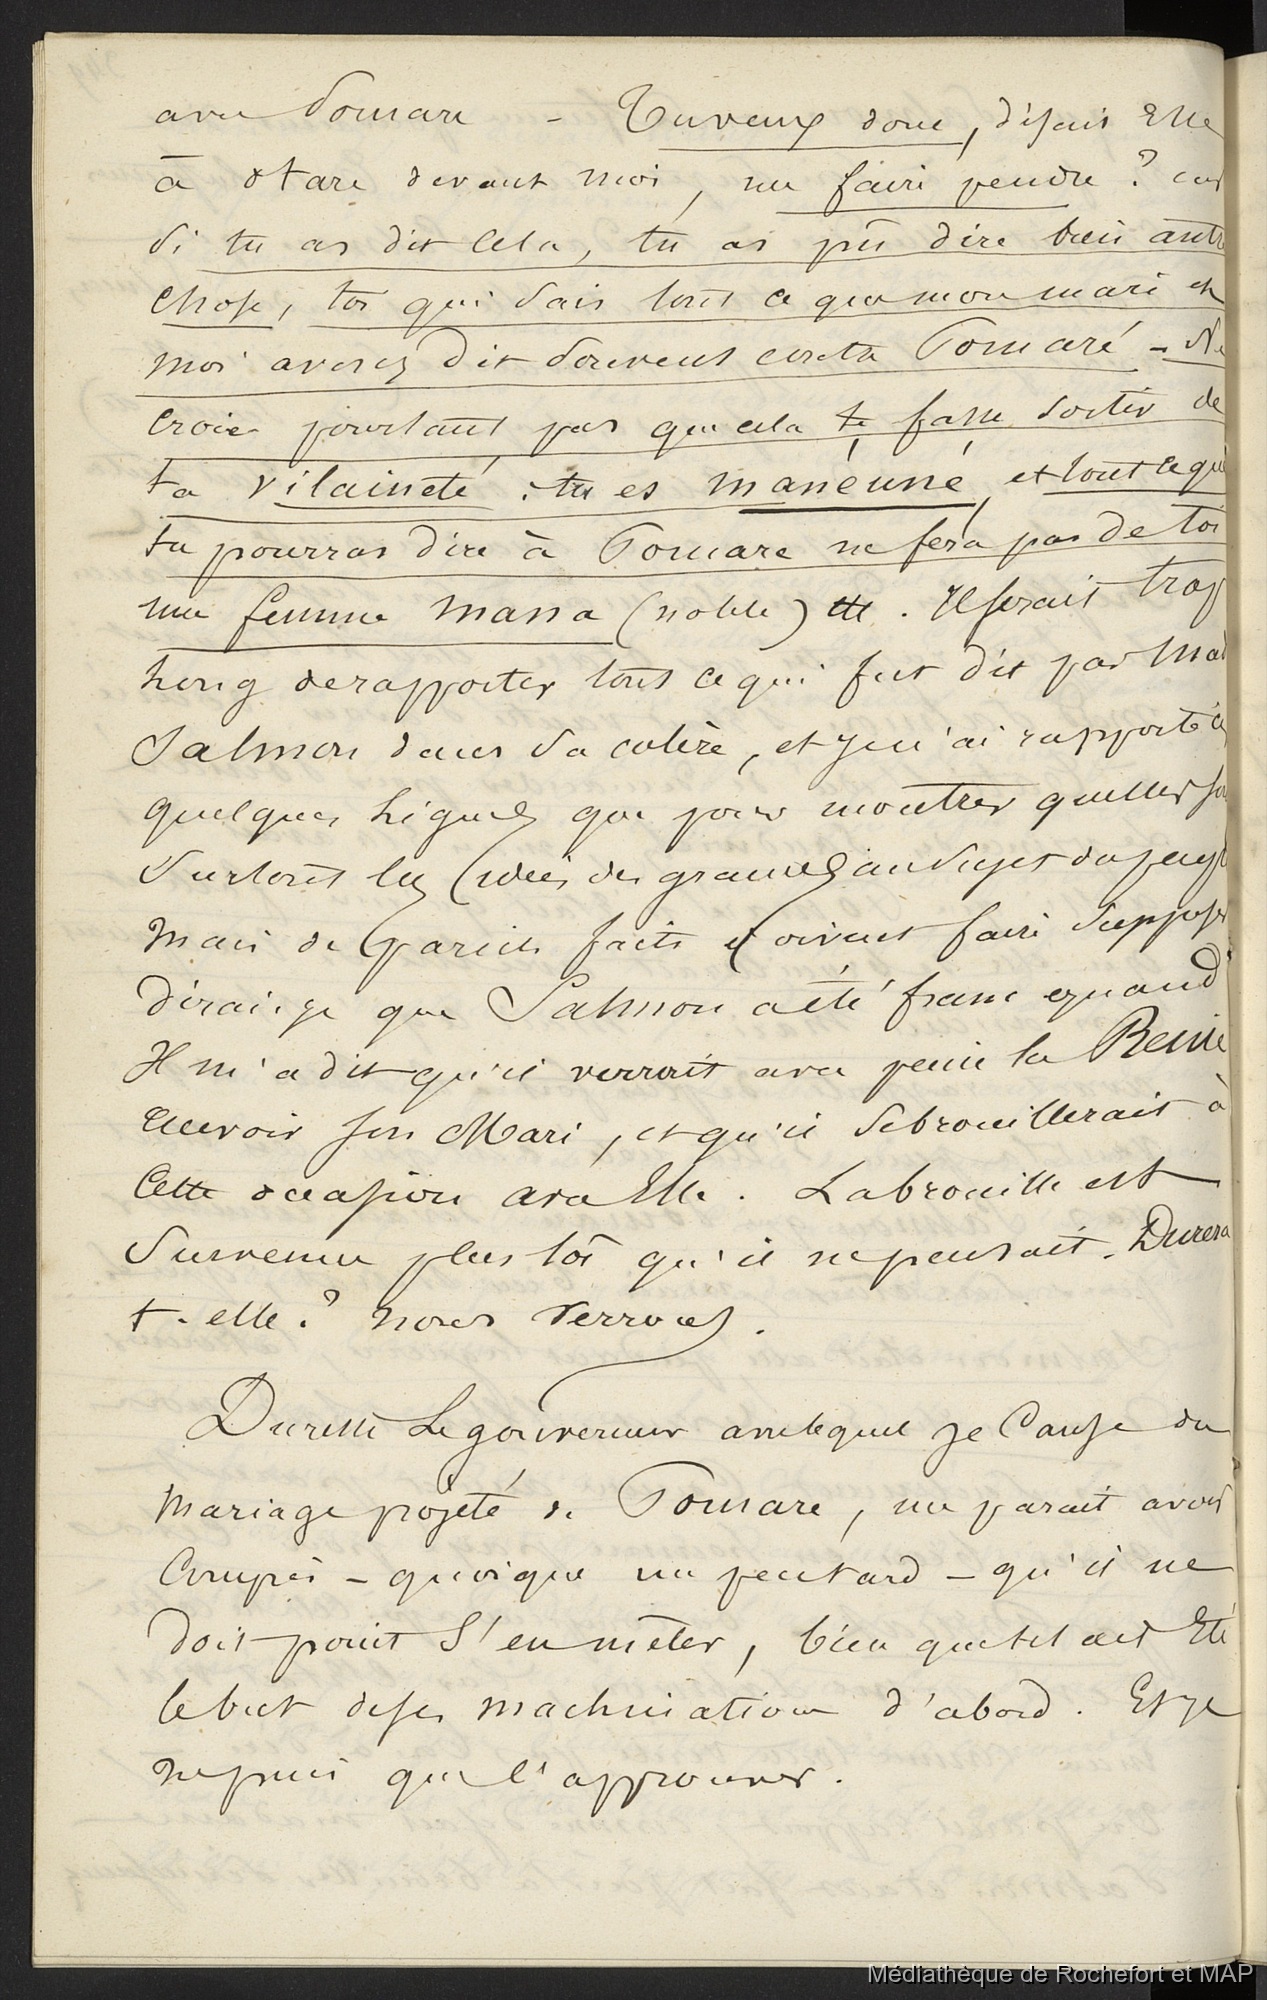 avec Pomare - Tu veux donc, disait Elle
à Otare devant moi, me faire pendre ? car
si tu as dit cela, tu as pu dire bien autre
chose, toi qui sais tout ce que mon mari et
moi avons dit souvent contre Pomaré - Ne
crois pourtant pas que cela te fasse sortir de
ta vilaineté : tu es manéuné, et tout ce que
tu pourras dire à Pomare ne fera pas de toi
une femme massa (noble) etc. Il serait trop
long de rapporter tout ce qui fut dit par Mad
Salmon dans sa colère, et je n'ai rapporté ces
quelques lignes que pour montrer quelles sont
surtout les idées des grands au sujet du peuple
Mais de pareils faits doivent faire supposer
dirai-je que Salmon a été franc quand
Il m'a dit qu'il verrait avec peine la Reine
recevoir son Mari, et qu'il se brouillerait à
cette occasion avec Elle. La brouille est
survenue plus tôt qu'il ne pensait. Durera
t-elle ? nous verrons.
Du reste Le gouverneur avec lequel je cause du
mariage projeté de Pomare, me parait avoir
compris - quoique un peu tard - qu'il ne
doit point s'en mêler, bien que tel ait Eté
le but de ses machinations d'abord. Et je
ne puis que l'approuver.
Médiathèque de Rochefort et MAP